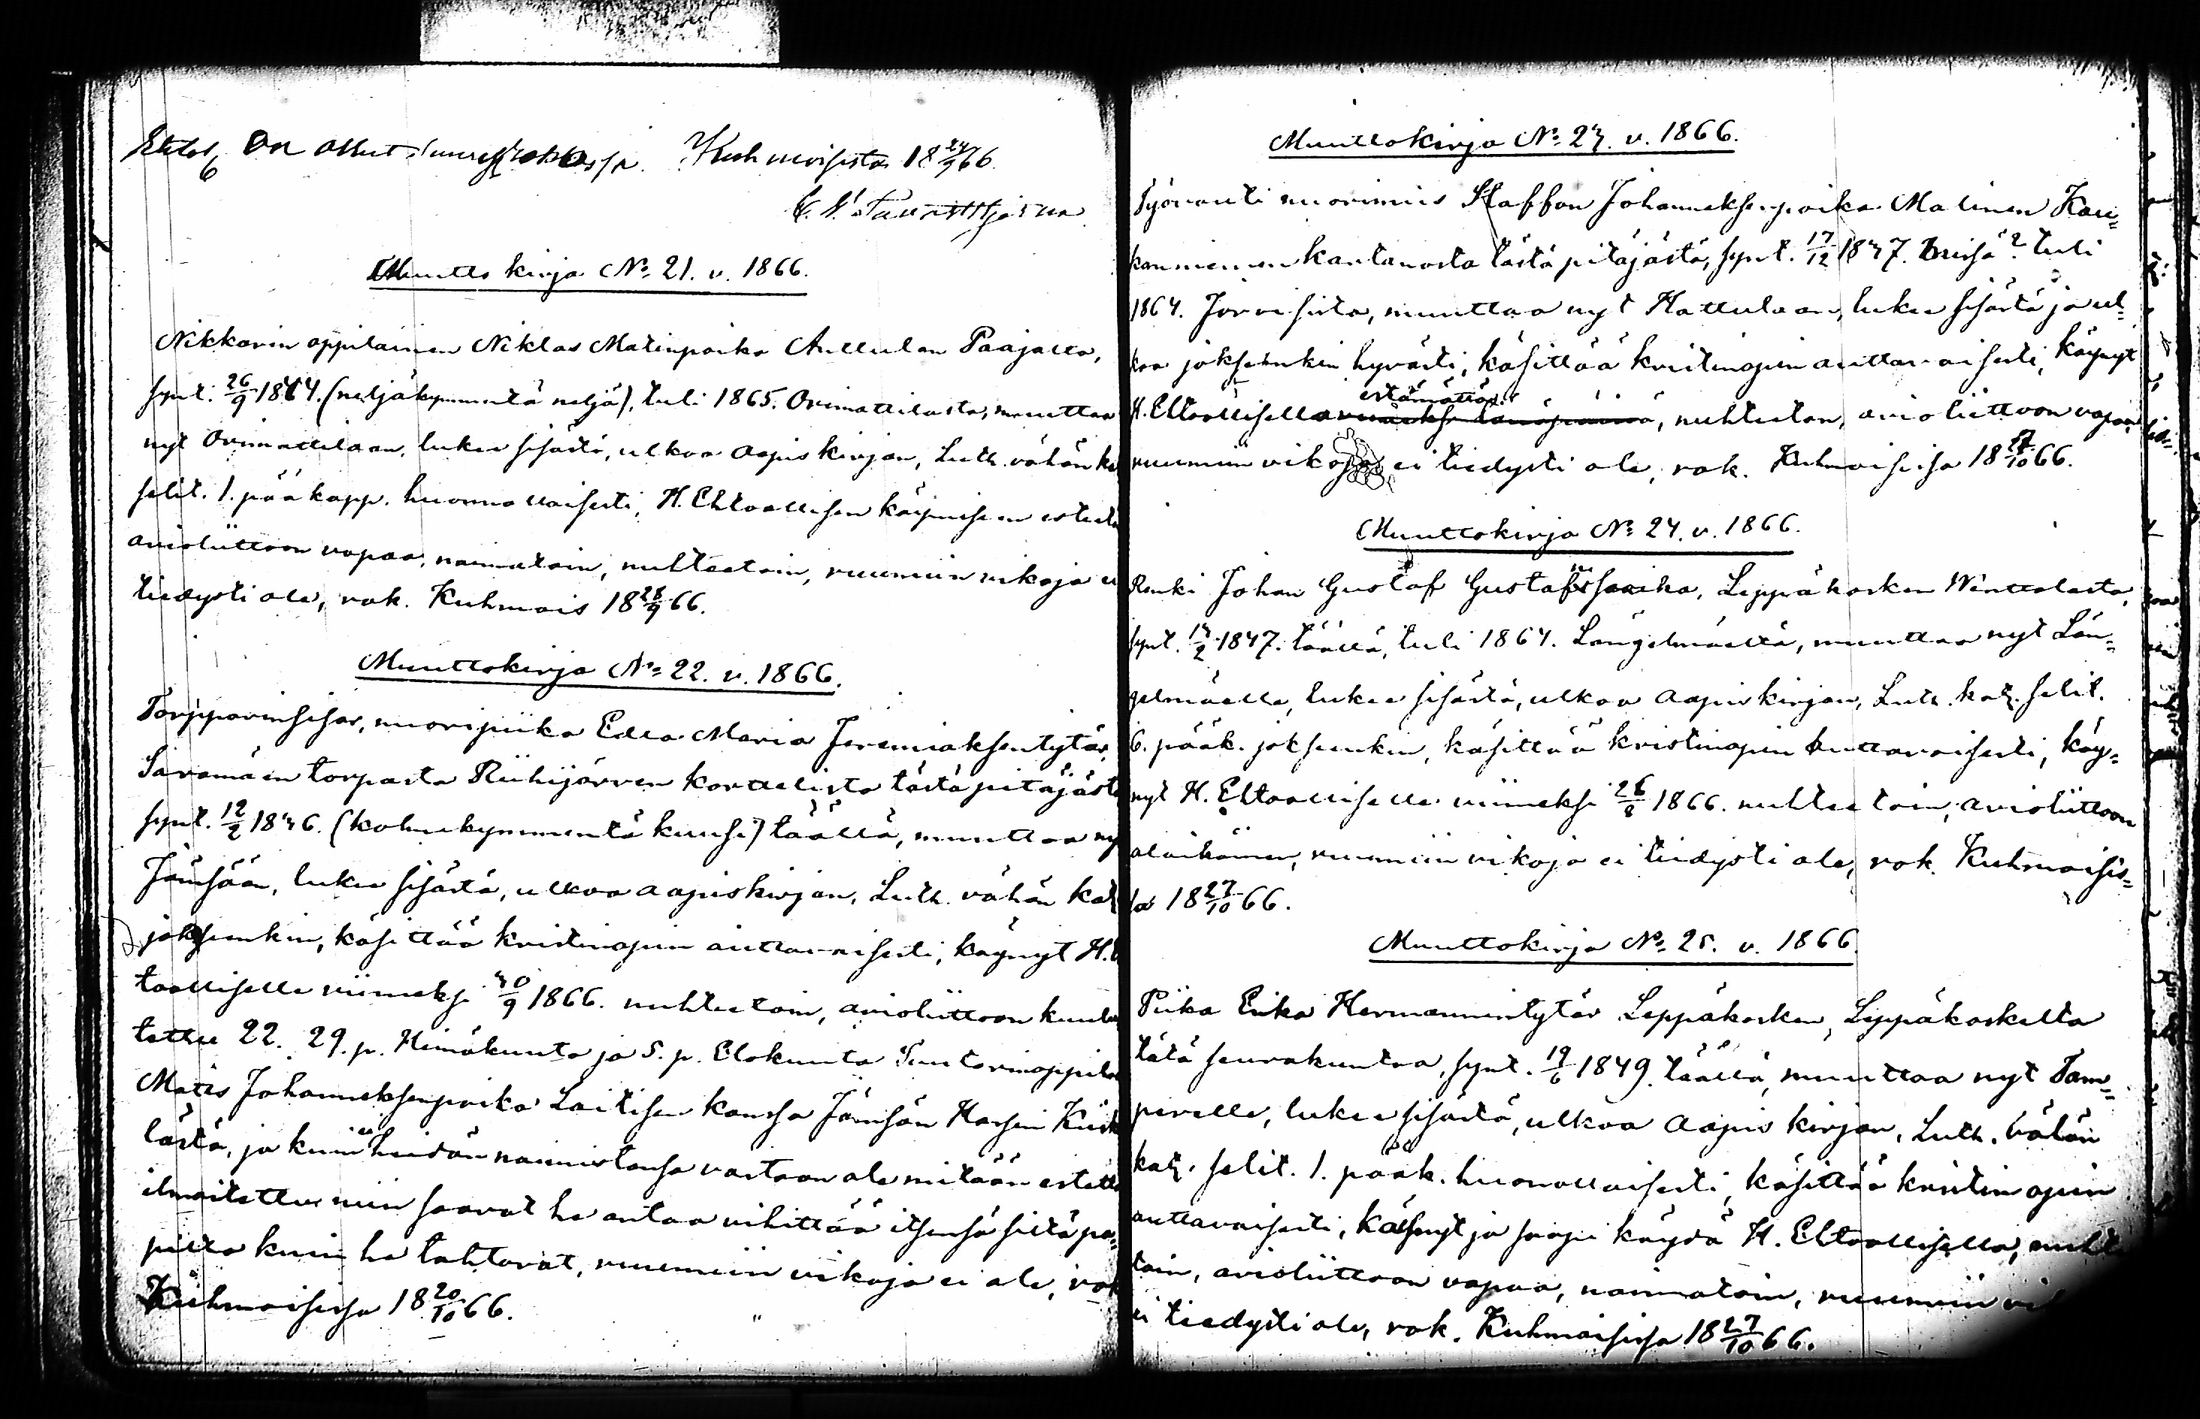 On ollut Kuhmoisista 18 24/9 66.
Muutto kirja No 21. v. 1866.
Nikkarin oppilainen Niklas Matinpoika Aullulan Paajalta,
synt. 26/9 1844. (neljäkymmentä neljä), tuli 1865. Orimattilasta, muuttaa
nyt Orimattilaan, lukee sisästä, ulkoa aapiskirjan, Luth. vähän ka
selit. 1. pääkapp. huonollaisesti, H. Ehtoollisen käymiseen estettä
avioliittoon vapaa, naimatoin, nuhteetoin, ruumiin vikoja ei
tiedysti ole, rok. Kuhmois 18 28/9 66.
Muuttokirja No 22. v. 1866.
Torpparinsisar, nuoripiika Edla Maria Jeremiaksentytär,
Saramäen torpasta Riihijärven korttelista tästä pitäjästä
synt. 12/2 1836. (kolmekymmentä kuusi) täällä, muuttaa ny
Jämsään, lukee sisästä, ulkoa aapiskirjan, Luth. vähän kat
joksenkin, käsittää kristinopin auttavaisesti, käynyt H. E
toolliselle viimeksi 30/9 1866. nuhteetoin, avioliittoon kuulu
tettu 22. 29. p. Heinäkuuta ja 5. p. Elokuuta Suutarinoppila
Matts Johanneksenpoika Laitisen kanssa Jämsän Harsin
lästä, ja kuin heidän naimistansa vastaan ole mitään estettä
ilmoitettu niin saavat he antaa vihittää itsensä siltä pa-
pilta kuin he tahtovat, ruumiin vikoja ei ole, rok
Kuhmoisissa 18 20/10 66.
Muuttokirja No 23. v. 1866.
Työvouti nuorimies Staffan Johanneksenpoika Malinen Kau-
kanniemen kartanosta tästä pitäjästä, synt. 17/12 1837. tuli
1864. Jorvisista, muuttaa nyt Hattulaan, lukee sisästä ja ul-
koa joksenkin hyvästi, käsittää kristinopin auttavaisesti, käynyt
estämättä
H. Ehtoollisella, nuhteetoin, avioliittoon vapaa
ruumiin vikoja ei tiedysti ole, rok. Kuhmoisissa 18 /10 66.
Muuttokirja No 24. v. 1866.
Renki Johan Gustaf Leppäkosken Winttalasta,
synt. 13/2 1847. täällä, tuli 1864. Längelmäeltä, muuttaa nyt Län-
gelmäelle, lukee sisästä, ulkoa aapiskirjan, Luth. kat. selit.
6. pääk. joksenkin, käsittää kristinopin auttavaisesti, käy-
nyt H. Ehtoollisella viimeksi 26/8 1866. nuhteetoin, avioliittoon
alaikäinen, ruumiin vikoja ei tiedysti ole, rok. Kuhmoisis-
sa 18 27/10 66.
Muuttokirja No 25. v. 1866.
Piika Erika Hermannintytär Leppäkosken, Leppäkoskelta
tätä seurakuntaa, synt. 19/6 1849. täällä, muuttaa nyt Tam-
perelle, lukee sisästä, ulkoa aapis kirjan, Luth. vähän
kat. selit. 1. pääk. huonollaisesti, käsittää kristinopin
auttavaisesti, käynyt ja saapi käydä H. Ehtoollisella, nuht
toin, avioliittoon vapaa, naimatoin, ruumiin vi
ei tiedysti ole, rok. Kuhmoisissa 18 27/10 66.